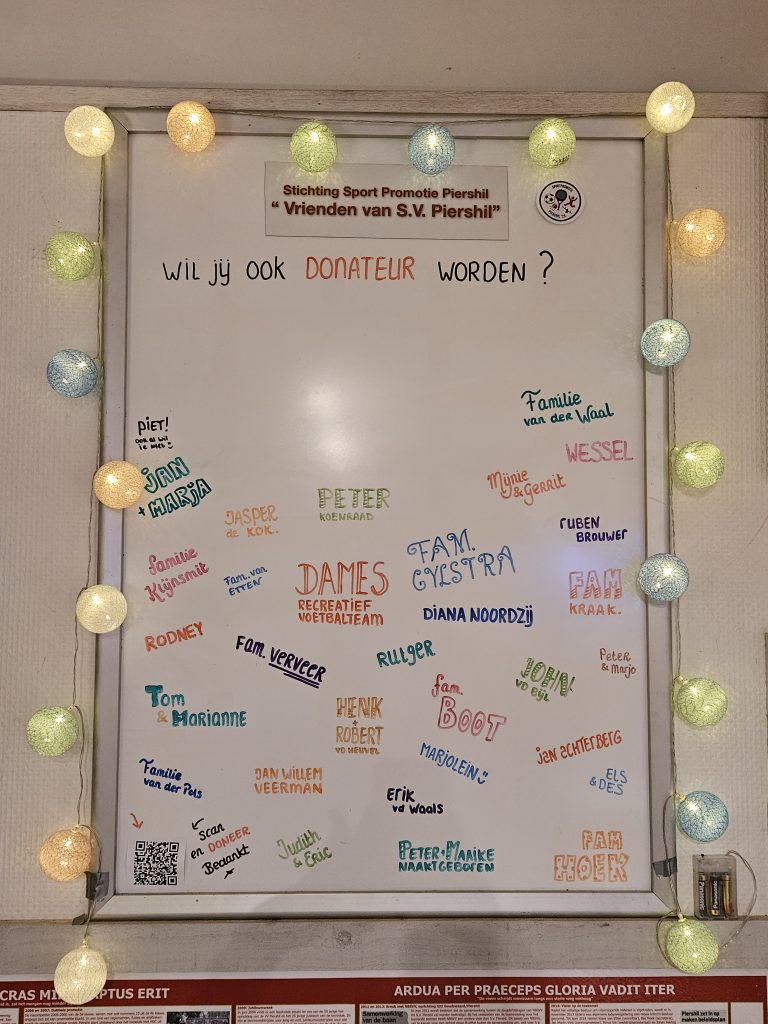 Stichting Sport Promotie Piershil
“ Vrienden van S.V. Piershil”
WIL JIJ OOK DONATEUR WORDEN ?
PIET!
Familie
van der Waal
WESSEL
JAN
+ MARJA
Mijnie
& Gerrit
PETER
KOENRAAD
JASPER
de KOK.
RUBEN
BROUWER
FAM.
GYLSTRA
familie
Klijnsmit
Fam. van
ETTEN
DAMES
RECREATIEF
VOETBALTEAM
FAM
KRAAK.
DIANA NOORDZIJ
RODNEY
Fam. VERVEER
RUTGER
Peter
& Marjo
JOHN
VD BIJL
Tom
& Marianne
HENK
+
ROBERT
VD HEUVEL
fam.
BOOT
JAN ACHTERBERG
MARJOLEIN
Familie
van der Pols
JAN WILLEM
VEERMAN
ELS
& DES
ERIK
vd WAALS
Scan
en DONEER
Bedankt
Judith
& Eric
PETER + MAAIKE
NAAKTGEBOREN
FAM
HOEK
Panasonic
ARDUA PER PRAECEPS GLORIA VADIT ITER
CRAS MI PTUS ERIT
Samenwerking
van de baan
Piershil zet in op
maken beleidsplan